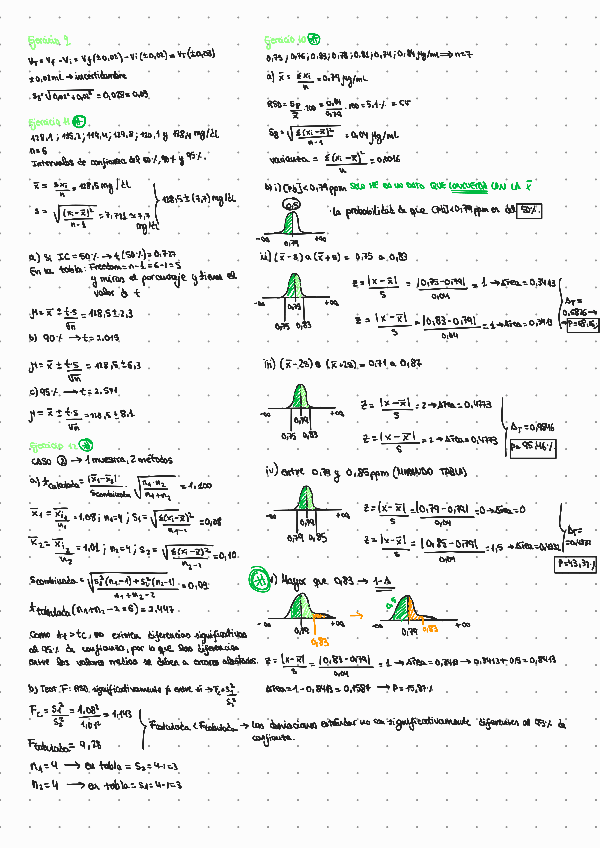 Ejercicio 9
V_T = V_f − V_i = V_f (±0,02) − V_i (±0,02) = V_T (±0,03)
±0,02 mL → incertidumbre
= √0,02² + 0,02² = 0,028 ≈ 0,03
Ejercicio 11
128,1 ; 125,2 ; 119,4 ; 129,8 ; 120,1 y mg/dL
n = 6
Intervalos de confianza del 50%, 90% y 95%.
x̄ = Σxi/n = 128,5 mg/dL
s = √Σ(xi − x̄)²/n−1 = ≈ 7,7 mg/dL
128,5 ± (7,7) mg/dL
a) Si IC = 50% → t (50%) = 0,727
En la tabla: Freedom = n − 1 = 6 − 1 = 5
y miras el porcentaje y tienes el
valor de t
μ = x̄ ± t·s/√n = 128,5 ± 2,3
b) 90% → t = 2,015
μ = x̄ ± t·s/√n = 128,5 ± 6,3
c) 95% → t = 2,571
μ = x̄ ± t·s/√n = 128,5 ± 8,1
Ejercicio 12
CASO 2 → 1 muestra, 2 métodos
a) t calculada = |x̄1 − x̄2|/S combinada √n1·n2/n1+n2 = 1,100
x̄1 = xi1/n1 = 1,08 ; n1 = 4 ; S1 = √Σ(xi − x̄)²/n1−1 = 0,08
x̄2 = xi2/n2 = 1,01 ; n2 = 4 ; S2 = √Σ(xi − x̄)²/n2−1 = 0,10
S combinada = √S1²(n1−1) + S2²(n2−1)/n1+n2−2 = 0,09
t tabulada (n1 + n2 − 2 = 6) = 2,447
Como t_T > t_c, no existen diferencias significativas
al 95% de confianza, por lo que las diferencias
entre los valores medios se deben a errores aleatorios.
b) Test F: significativamente ≠ entre sí → F_c = S1²/S2²
F_c = S1²/S2² = 1,08²/1,01² = 1,143
F tabulada = 9,28
F calculada < F tabulada → Las desviaciones estándar no son significativamente diferentes al 95% de
confianza.
n1 = 4 → en tabla = S2 = 4−1 = 3
n2 = 4 → en tabla = S1 = 4−1 = 3
Ejercicio 10
0,75 ; 0,76 ; 0,83 ; 0,78 ; 0,82 ; 0,74 ; 0,84 μg/mL ⟹ n = 7
a) x̄ = Σxi/n = 0,79 μg/mL
RSD = S/x̄ · 100 = 0,04/0,79 · 100 = 5,1% = CV
S = √Σ(xi − x̄)²/n−1 = 0,04 μg/mL
varianza = Σ(xi − x̄)²/n = 0,0016
b) i) [Pb] < 0,79 ppm SOLO ME DA UN DATO QUE CONCUERDA CON LA x̄
0,5
−∞ 0,79 +∞
La probabilidad de que [Pb] < 0,79 ppm es del 50%.
ii) (x̄ − s) a (x̄ + s) = 0,75 a 0,83
−∞ 0,79 +∞
0,75 0,83
z = |x − x̄|/s = |0,75 − 0,79|/0,04 = 1 → Área = 0,3413
z = |x − x̄|/s = |0,83 − 0,79|/0,04 = 1 → Área = 0,3413
A_T = 0,6826 →
iii) (x̄ − 2s) a (x̄ + 2s) = 0,71 a 0,87
−∞ 0,79 +∞
0,75 0,83
z = |x − x̄|/s = 2 → Área = 0,4773
z = |x − x̄|/s = 2 → Área = 0,4773
A_T = 0,9546
P = 95,46%
iv) entre 0,79 y 0,85 ppm (MIRANDO TABLA)
−∞ 0,79 +∞
0,79 0,85
z = |x − x̄|/s = |0,79 − 0,79|/0,04 = 0 → Área = 0
z = |x − x̄|/s = |0,85 − 0,79|/0,04 = 1,5 → Área = 0,4332
A_T = 0,4332
P = 43,32%
v) Mayor que 0,83 → 1−A
−∞ 0,79 0,83 +∞
0,5
−∞ 0,79 0,83 +∞
z = |x − x̄|/s = |0,83 − 0,79|/0,04 = 1 → Área = 0,3413 → 0,3413 + 0,5 = 0,8413
Área = 1 − 0,8413 = 0,1587 → P = 15,87%